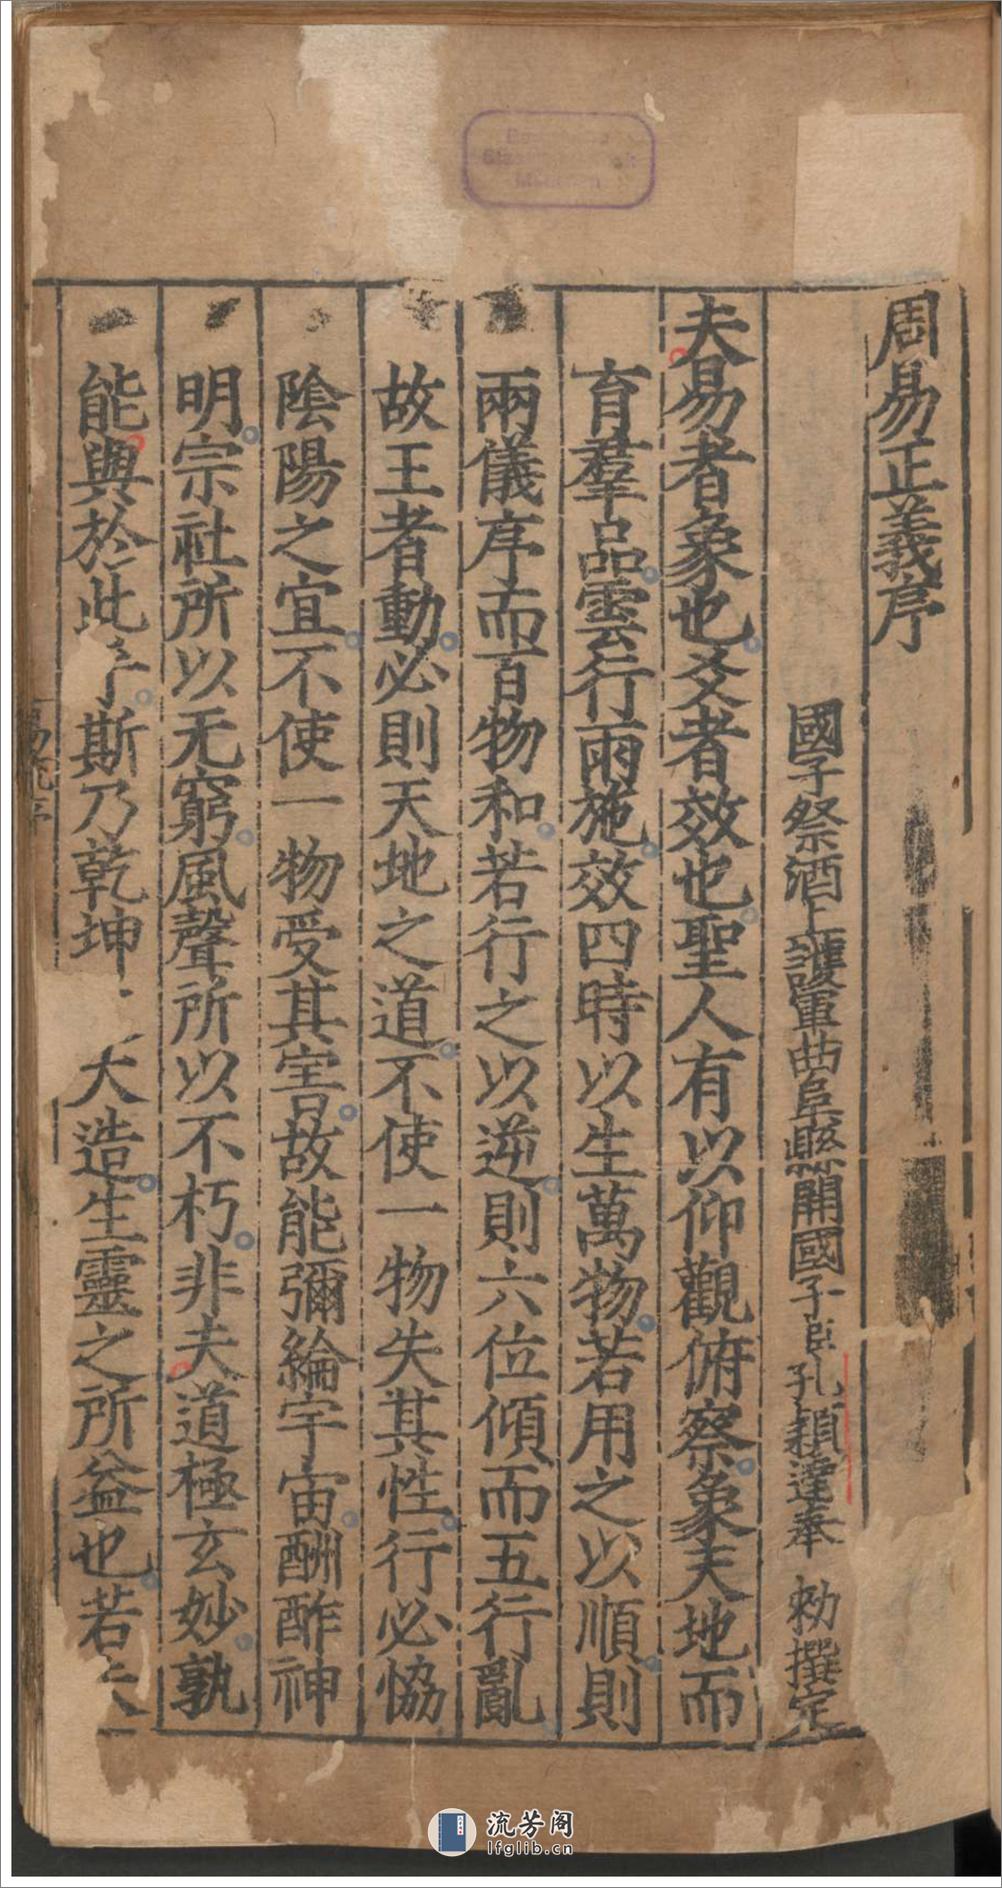 周易正義序
國子祭酒上護軍曲阜縣開國子臣孔穎達奉 勑撰定
夫易者象也爻者效也聖人有以仰觀俯察象天地而
育羣品雲行雨施效四時以生萬物若用之以順則
兩儀序而百物和若行之以逆則六位傾而五行亂
故王者動必則天地之道不使一物失其性行必恊
陰陽之宜不使一物受其害故能彌綸宇宙酬酢神
明宗社所以无窮風聲所以不朽非夫道極玄妙孰
能與於此乎斯乃乾坤大造生靈之所益也若
流芳阁
lfglib.cn